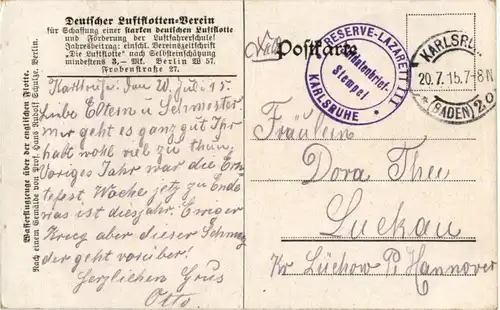 Deutscher Luftflotten-Verein
für Schaffung einer starken deutschen Luftflotte
und Förderung der Luftfahrerschule!
Jahresbeitrag: einschl. Vereinszeitschrift
"Die Luftflotte" nach Selbsteinschätzung
mindestens 3,— Mk. Berlin W 57.
Frobenstraße 27.
Wasserflugzeuge über der englischen Flotte.
Nach einem Gemälde von Prof. Hans Rudolf Schulze, Berlin.
Karlsruhe, den 20. Juli 15.
Liebe Eltern u Schwester
mir geht es ganz gut Ihr
habt wohl viel zu thun
Voriges Jahr war die Ern
tefest. Woche jetz zu Ende
was ist diesjahr. Ewiger
Krieg aber dieser Schmerz
der geht vorüber!
Herzlichen Grus
Otto.
Postkarte
RESERVE-LAZARETT III
KARLSRUHE
Soldatenbrief-
Stempel
KARLSRUHE
20.7.15.7-8N
(BADEN) 2
Fräulein
Dora Thee
Luckau
Kr Lüchow P. Hannover